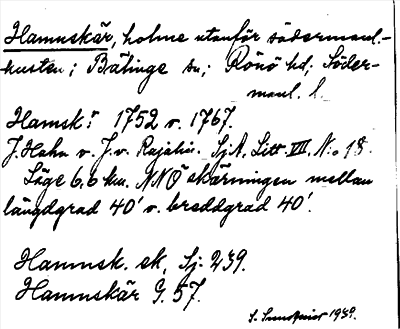 Hamnskär, holme utanför södermanl.-
kusten; Bälinge sn; Rönö hd; Söder-
manl. l.
Hamsk:r 1752 o. 1767.
J. Hahn o. J. v. Rajalin. Sj.A. Litt. VII, N:o 18.
Läge 6,6 km. NNO skärningen mellan
längdgrad 40' o. breddgrad 40'.
Hamnsk. ek, Sj. 239.
Hamnskär G. 57.
1939.